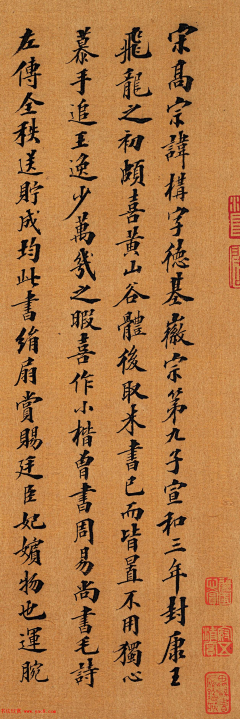 宋高宗諱構字德基徽宗第九子宣和三年封康王
飛龍之初頗喜黃山谷體後取米書已而皆置不用獨心
慕手追王逸少萬幾之暇喜作小楷曾書周易尚書毛詩
左傳全秩送貯成均此書絹扇賞賜廷臣妃嬪物也運腕